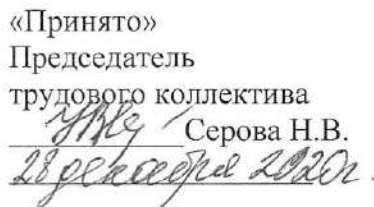 «Принято»
Председатель
трудового коллектива
Серова Н.В.
28 декабря 2020г.